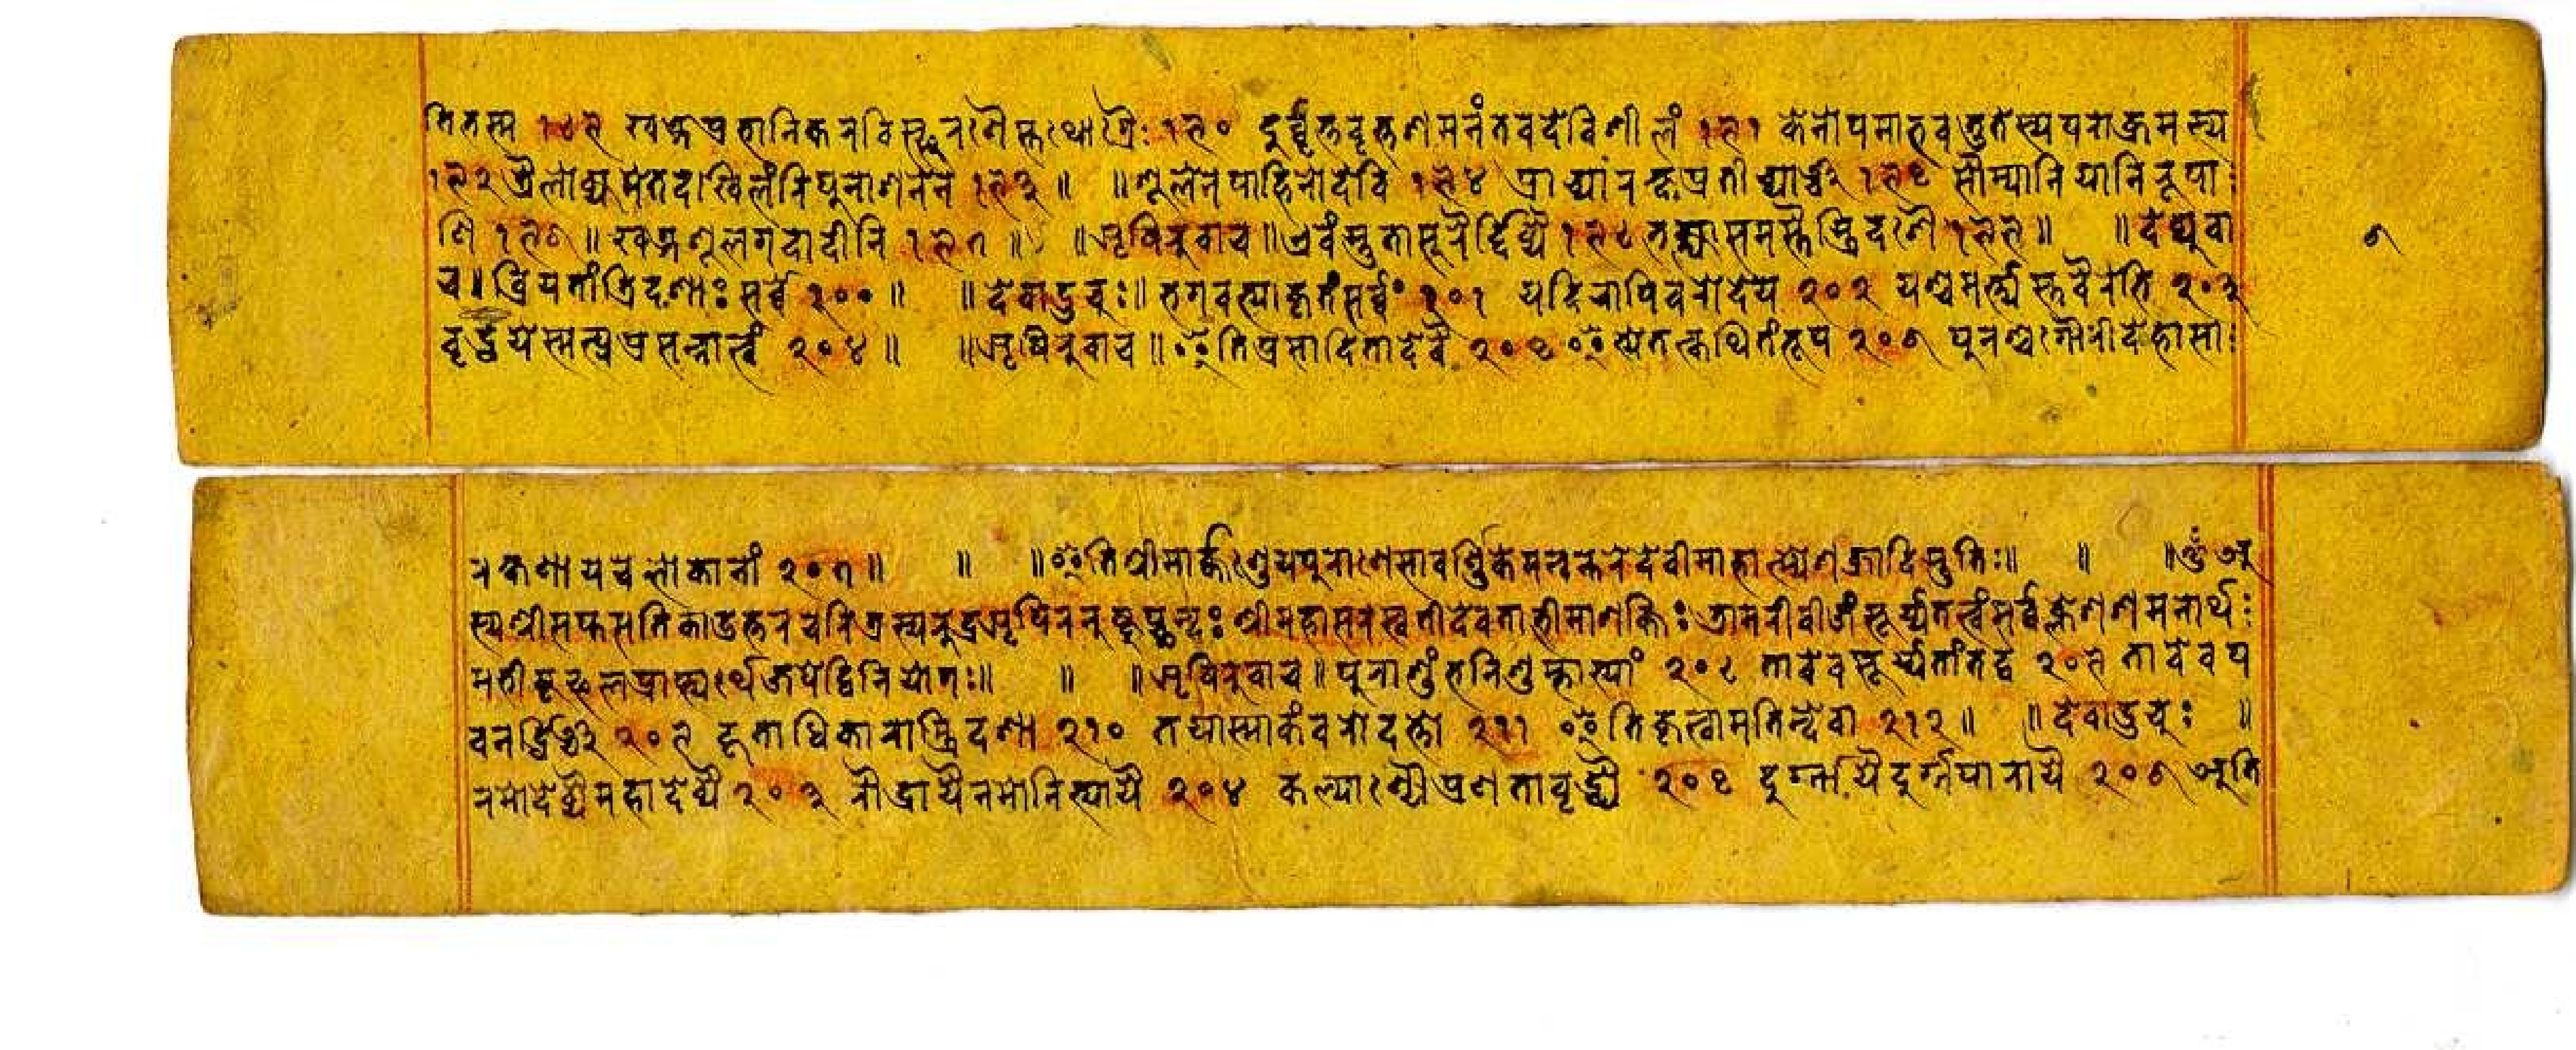 तितस्म १८९ खड्गप्रभानिकरविस्फुरणैस्तथोग्रैः १९० दुर्वृत्तवृत्तशमनंतवदेविशीलं १९१ केनोपमाभवतुतेस्यपराक्रमस्य
१९२ त्रैलोक्यमेतदखिलंरिपुनाशनेन १९३ ॥ ॥ शूलेनपाहिनोदेवि १९४ प्राच्यांरक्षप्रतीच्याञ्च १९५ सौम्यानियानिरूपा
णि १९६ ॥ खड्गशूलगदादीनि १९७ ॥ ॥ ऋषिरुवाच ॥ एवंस्तुतासूरैर्द्दिव्यै १९८ भक्त्यासमस्तैस्त्रिदशै १९९ ॥ ॥ देव्युवा
च ॥ व्रियतांत्रिदशाः सर्व्वे २०० ॥ ॥ देवाउचुः ॥ भगवत्याकृतंसर्व्वं २०१ यदिचापिवरोदेय २०२ यश्चमर्त्त्यस्तवैरेभि २०३
वृद्धयेस्मत्प्रप्रसन्नात्वं २०४ ॥ ॥ ऋषिरुवाच ॥ इतिप्रसादितादेवै २०५ इत्येतत्कथितंभूप २०६ पुनश्चगौरीदेहासा
६
रक्षणायचलोकानां २०७ ॥ ॥ ॥ इतिश्रीमार्क्कण्डेयपुराणेसावर्ण्णिकेमन्वन्तरेदेवीमाहात्म्येशक्रादिस्तुतिः ॥ ॥ ॥ ॐ अ
स्यश्रीसप्तसतिकाउत्तरचरित्रस्यरुद्रऋषिरनुष्टुप्छन्दः श्रीमहासरस्वतीदेवताभीमाशक्तिः भ्रामरीवीजंसूर्य्यतत्वंसर्व्वक्लेशशमनार्थ
मभीष्टफलप्राप्त्यर्थेजपेद्विनियोगः ॥ ॥ ॥ ऋषिरुवाच ॥ पुराशुंभनिशुम्भाभ्यां २०८ तावेवसूर्य्यतांतद्व २०९ तावेवप
वनर्द्धिञ्च २०९ हृताधिकारास्त्रिदशा २१० तयास्माकंवरोदत्तो २११ इतिकृत्वामतिन्देवा २१२ ॥ ॥ देवाउचुः ॥
नमोदेव्यैमहादेव्यै २०३ रौद्रायैनमोनित्यायै २०४ कल्याण्यैप्रणतावृद्ध्यै २०५ दुर्ग्गायैदुर्ग्गपारायै २०६ अति